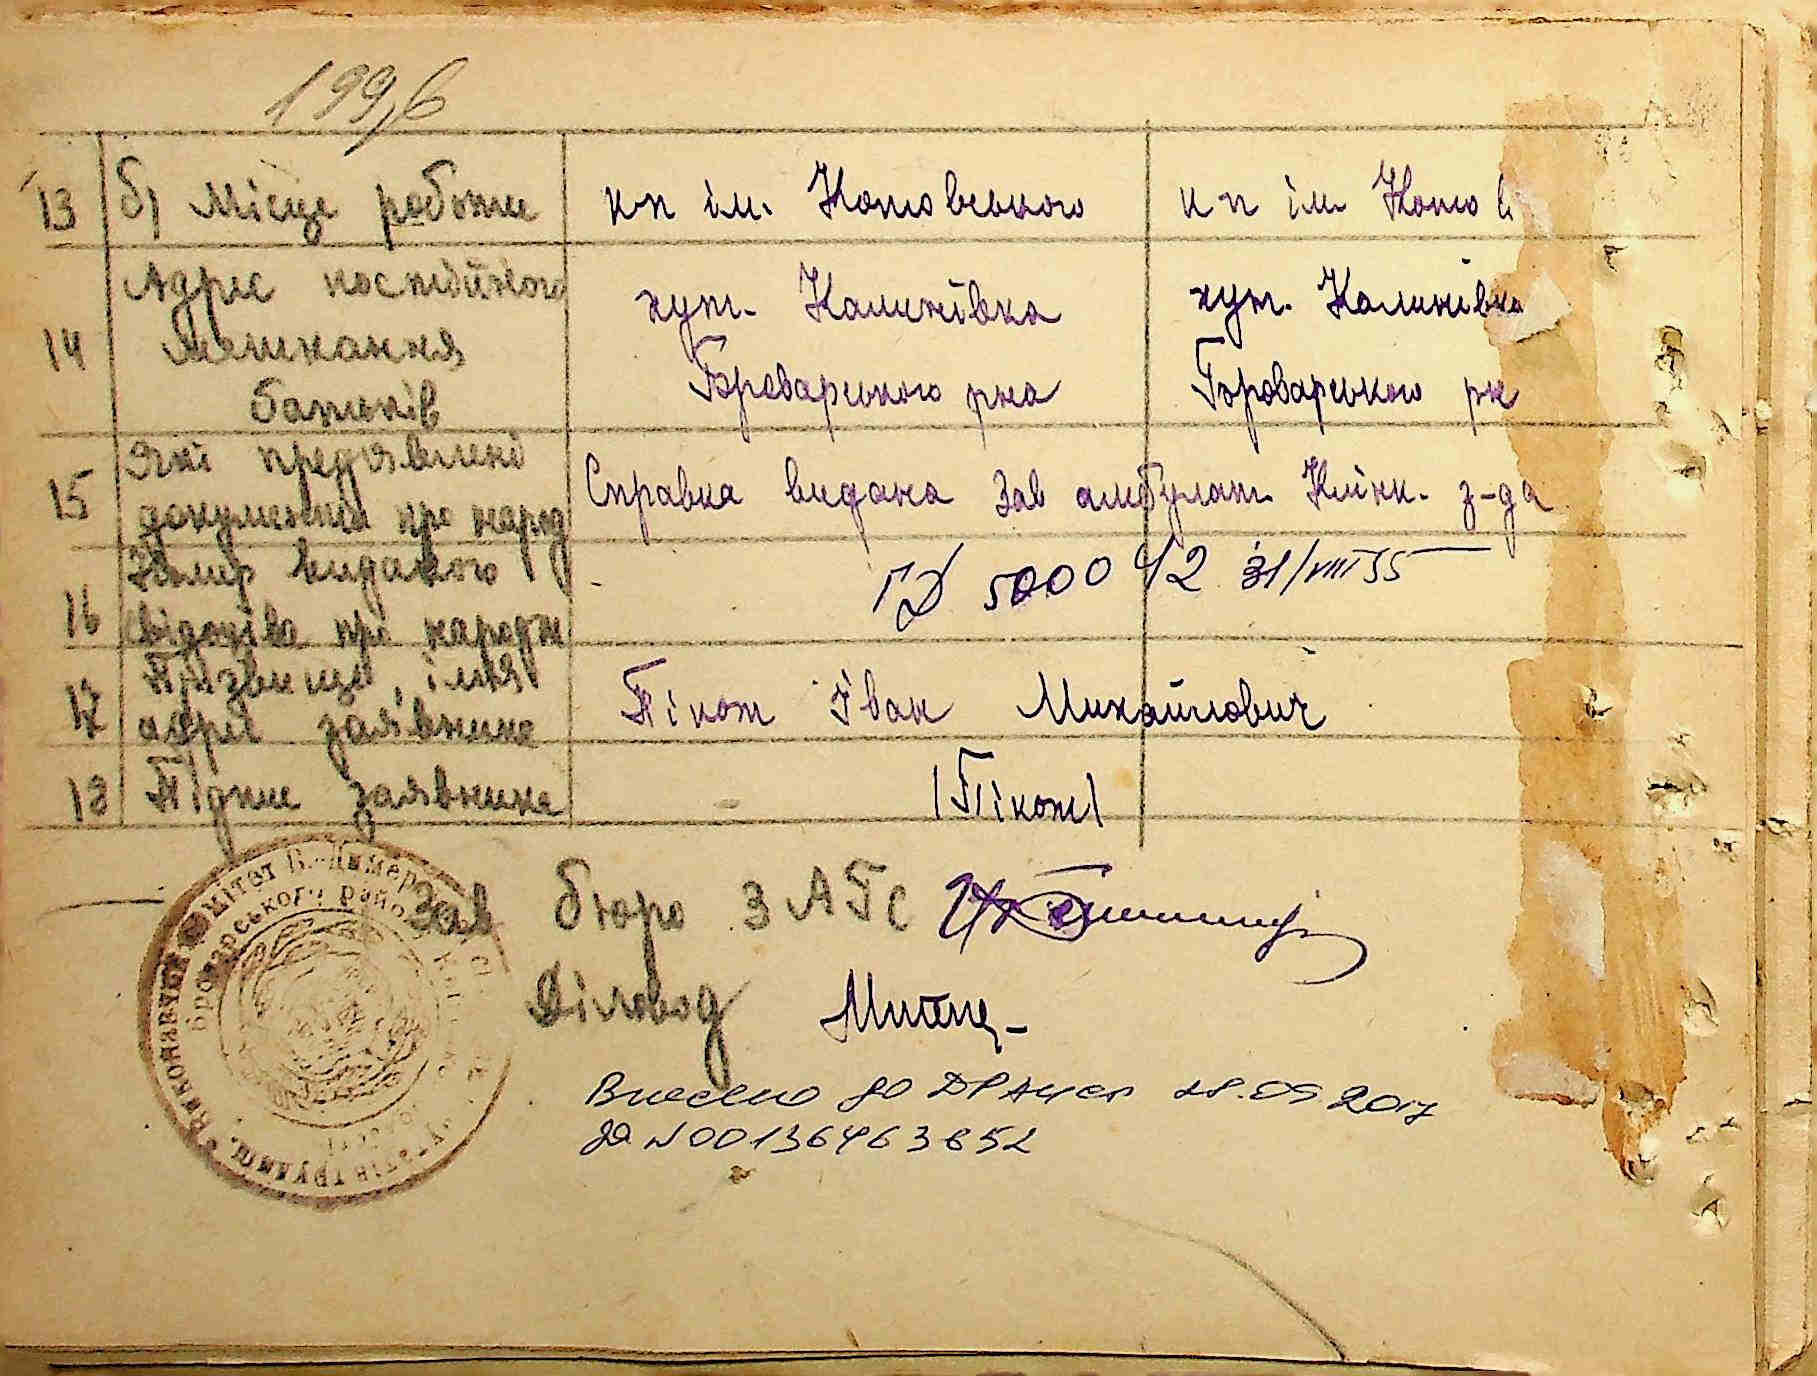 199,б
13 б) Місце роботи к-п ім. Котовського к-п ім. Котов
14 Адрес постійного мешкання батьків хут. Калинівка Броварського р-на хут. Калинівка Броварського р-н
15 Які предявлені документи про народ Справка видана Зав амбулат. з-да
16 Номер виданого свідоцтва про народж - ГД 500042 31/VIII 55
17 Прізвище, імя адрес заявника Пікож Іван Михайлович
18 Підпис заявника /Пікож/
Зав бюро ЗАГС
Діловод
Внесено до ДРАЦСГ 28.09 2017
АЗ №00136463652
Виконавчий комітет В.-Димерс
Броварського райо
трудящ.